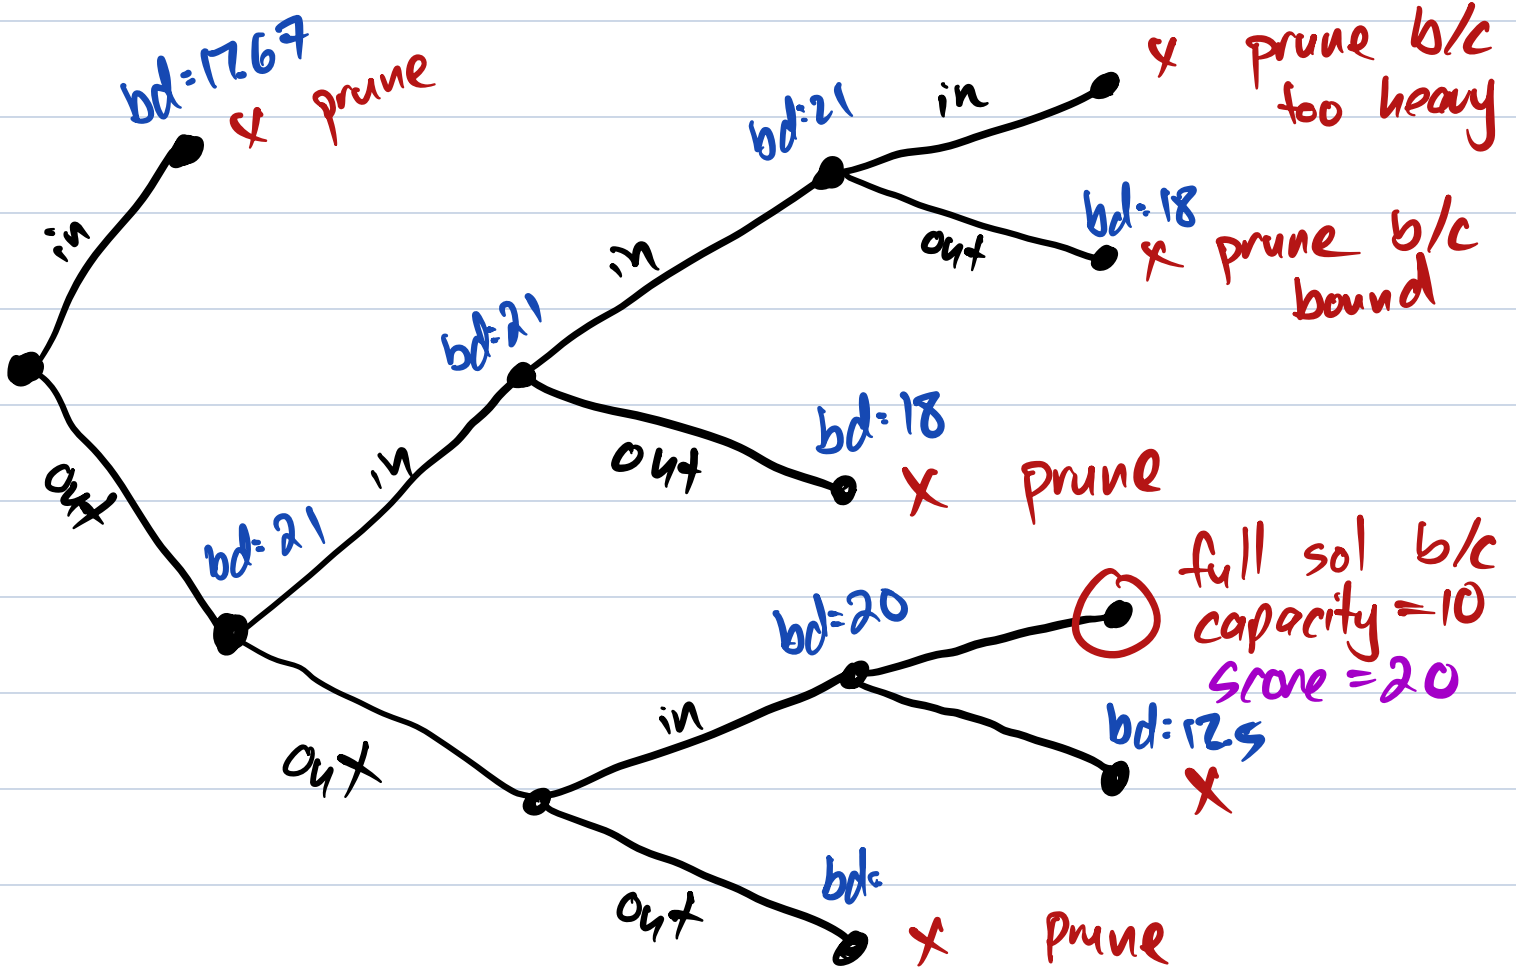 bd=17.67
x prune
in
out
bd=21
in
out
bd=21
in
out
bd=21
in
out
x prune b/c
too heavy
bd=18
x prune b/c
bound
bd=18
x prune
bd=20
in
out
full sol b/c
capacity=10
score=20
bd=12.5
x
bd=
x prune